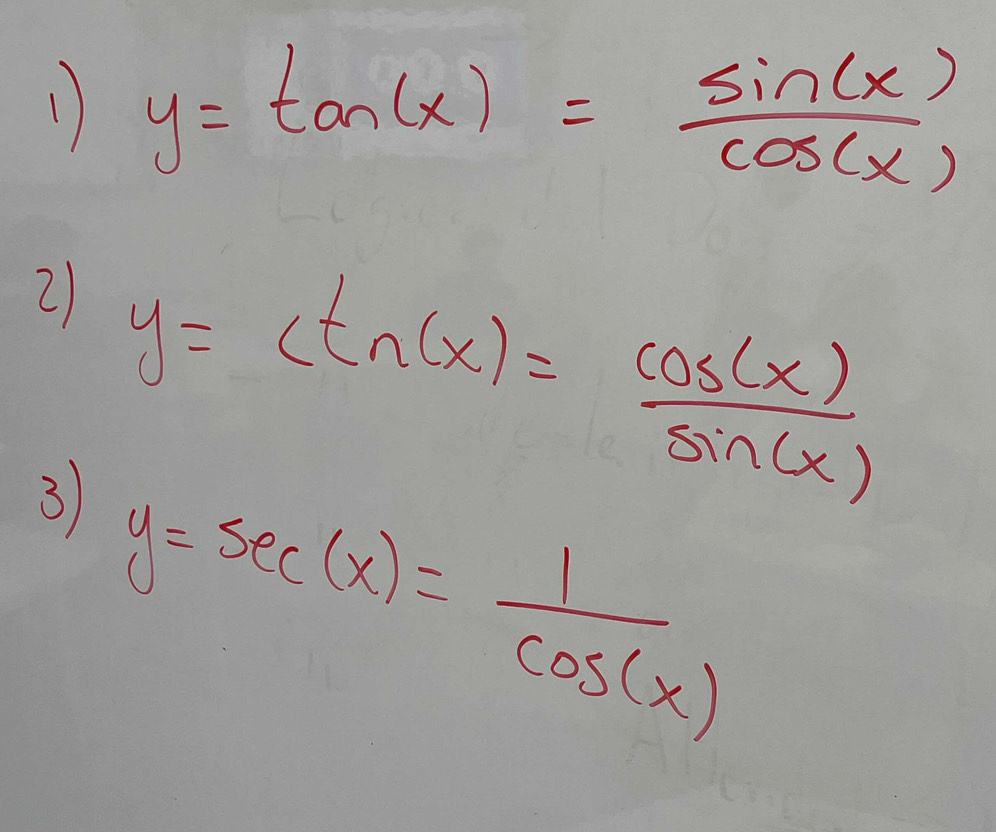 1) y = tan(x) = sin(x)/cos(x)
2) y = ctn(x) = cos(x)/sin(x)
3) y = sec(x) = 1/cos(x)